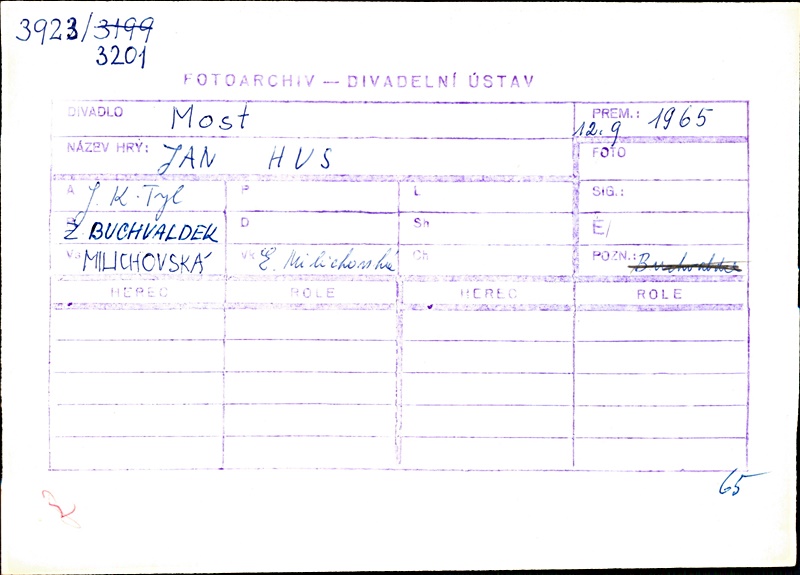 3923/3199
3201
FOTOARCHIV — DIVADELNÍ ÚSTAV
DIVADLO Most PREM.: 12.9 1965
NÁZEV HRÝ: JAN HUS FOTO
A J. K. Tyl P L SIG.:
Z BUCHVALDEK D Sh Ë/
MILICHOVSKÁ Vk E. Milichovská Ch POZN.:
HEREC ROLE HEREC ROLE
65